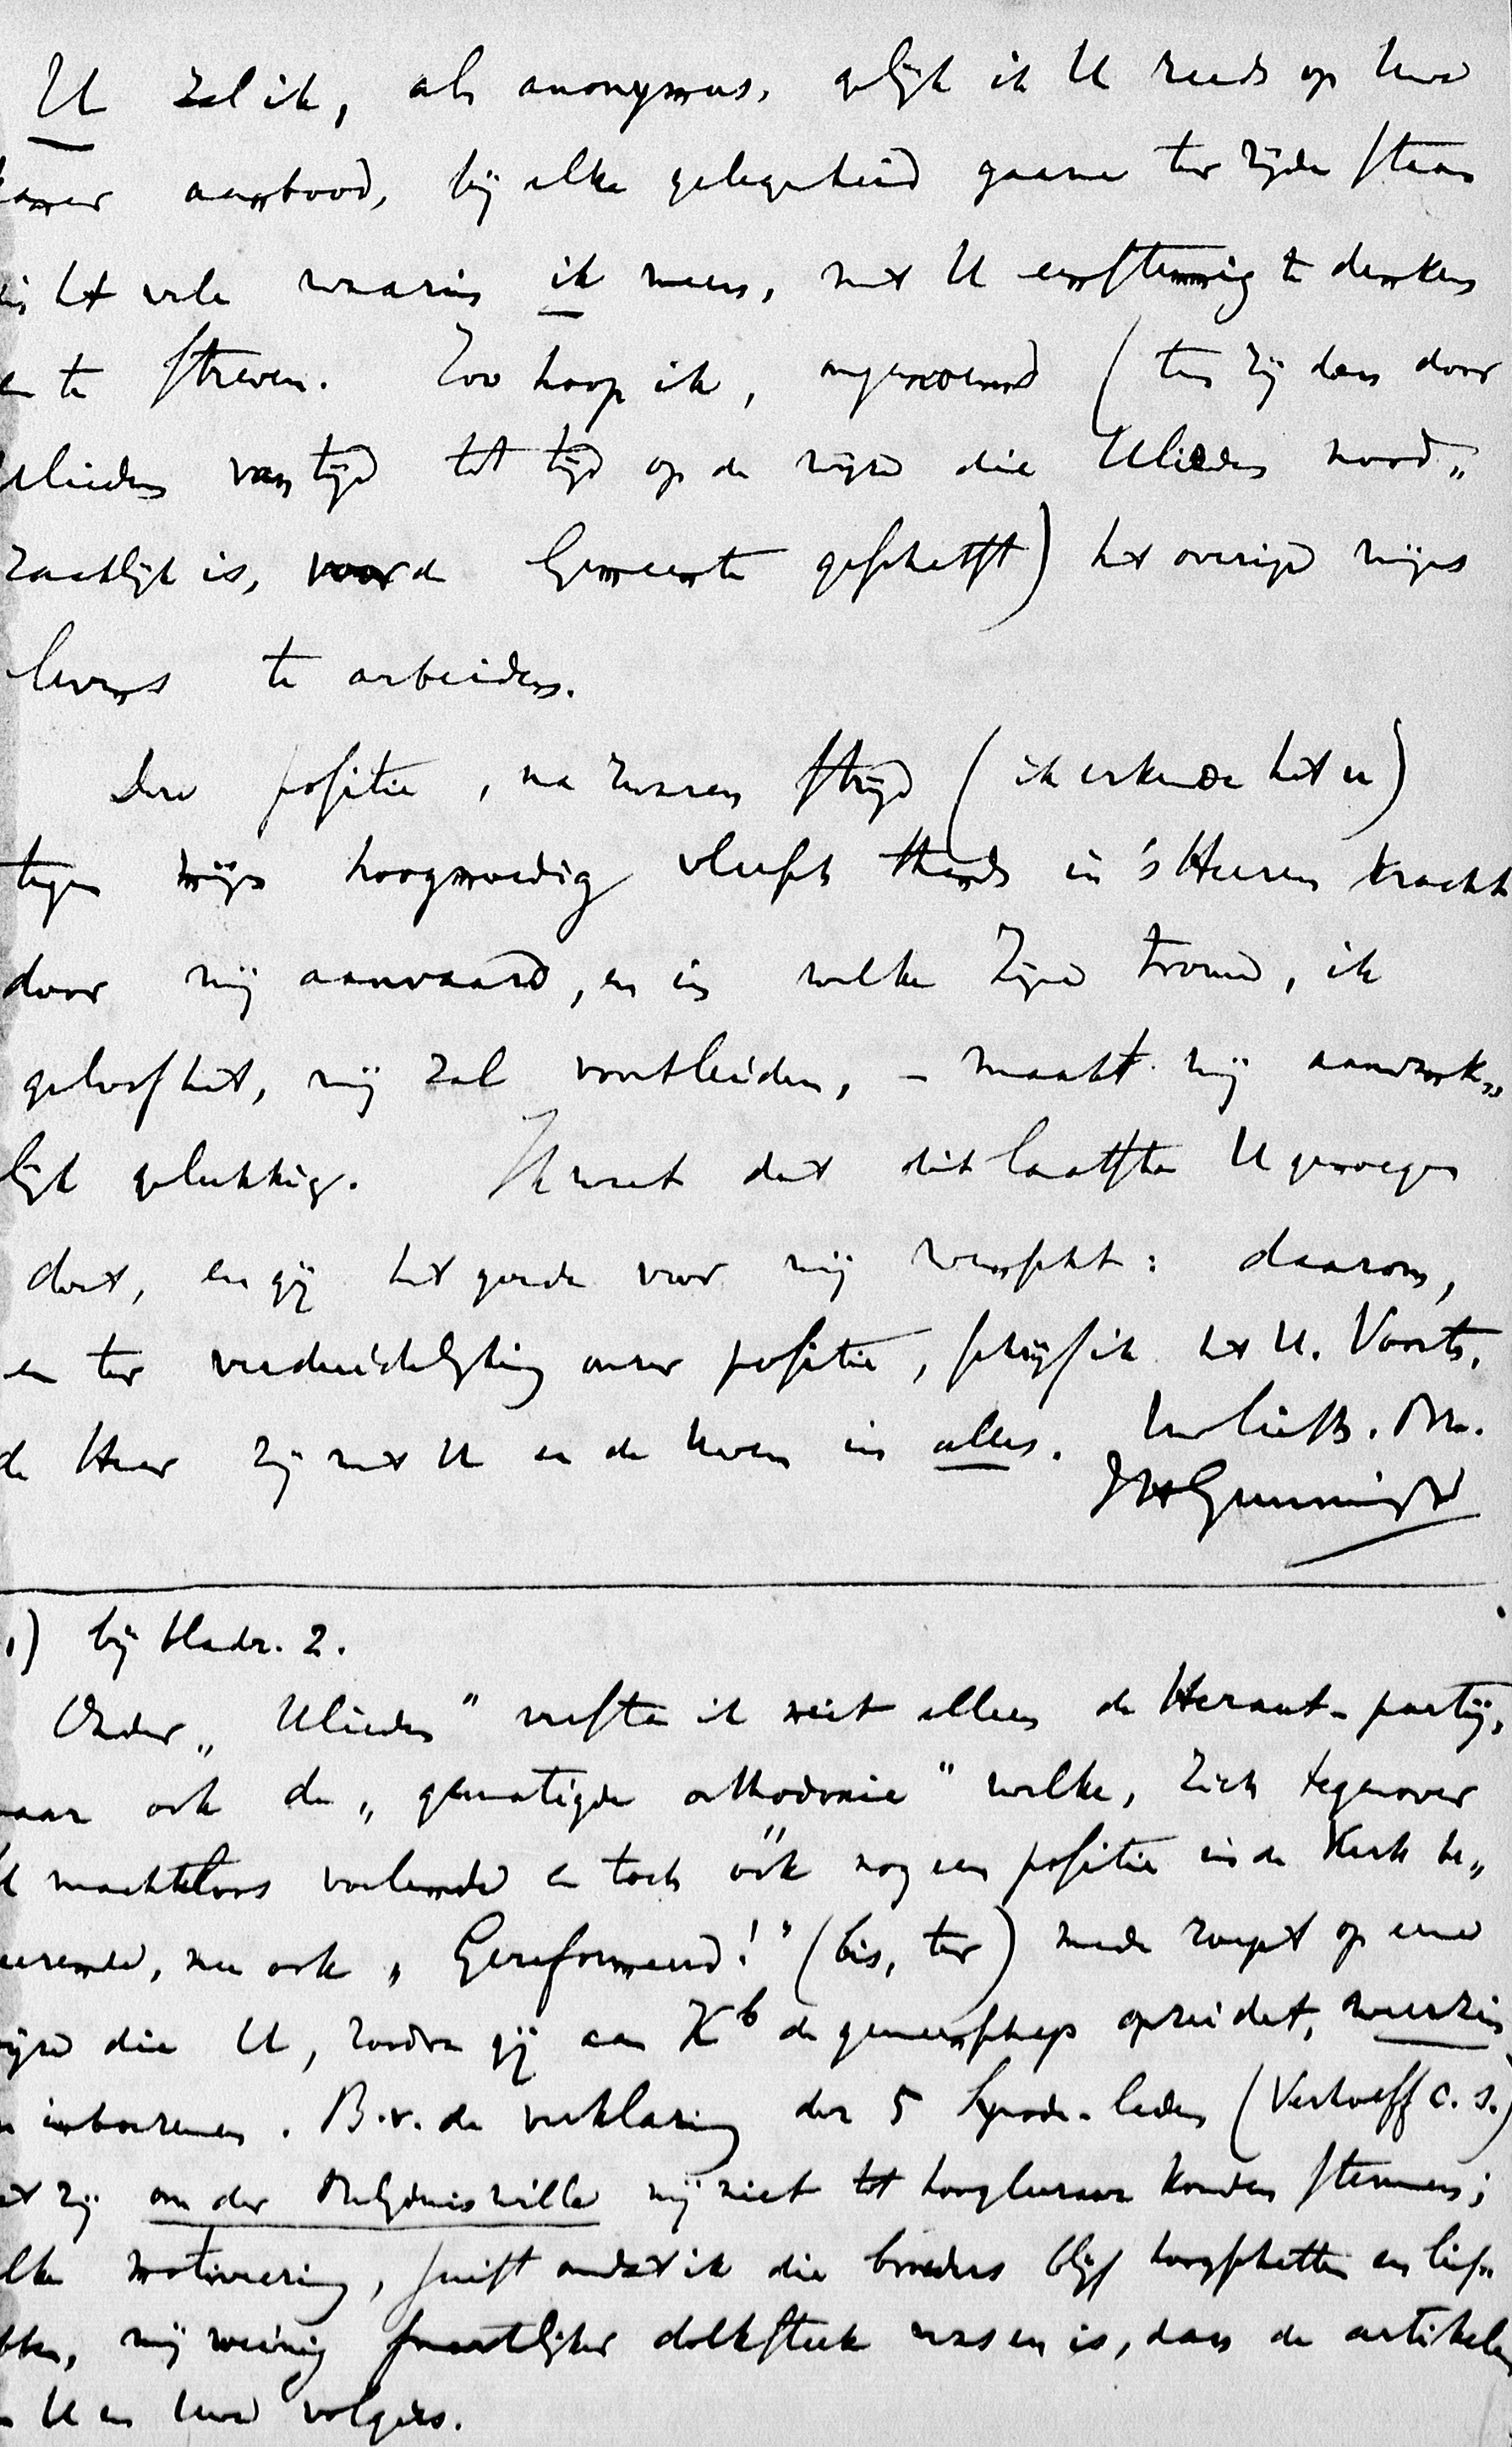 U zal ik, als anonymus, gelijk ik U reeds op Uwe
kamer aanbood, bij elke gelegenheid gaarne ter zijde staan
in het vele waarin ik meen, met U eenstemmig te denken
en te streven. Zoo hoop ik, ongenoemd (ten zij dan door
Ulieden van tijd tot tijd op de wijze die Ulieden nood„
zaaklijk is, voor de Gemeente geschetst) het overige mijns
levens te arbeiden.
Deze positie, na zwaren strijd (ik erkende het u)
tegen mijn hoogmoedig vleesch thands in 's Heeren kracht
door mij aanvaard, en in welke Zijne trouwe, ik
geloof het, mij zal voortleiden, – maakt mij aanvank„
lijk gelukkig. Ik weet dat dit laatste U genoegen
doet, en gij het goede voor mij wenscht: daarom,
en ter verduidelijking onzer positie, schrijf ik het U. Voorts,
de Heer zij met U en de Uwen in alles. Uw liefh. Br.
JHGunning Jr
1) bij bladz. 2.
Onder „Ulieden" versta ik niet alleen de Heraut-partij,
maar ook de „gematigde orthodoxie" welke, zich tegenover
machteloos voelende en toch óók nog een positie in de Kerk be„
geerende, nu ook „Gereformeerd!" (bis, ter) mede roept op eene
wijze die U, zoodra gij aan K^b de gemeenschap opzeidet, weerzin
inboezemen. B.v. de verklaring der 5 Synode-leden (Verhoeff c.s.)
dat zij om der belijdenis wille mij niet tot hoogleeraar konden stemmen;
welke motiveering, juist omdat ik die broeders blijf hoogschatten en lief„
hebben, mij weinig smartlijker dolksteek was en is, dan de artikelen
van U en Uwe volgers.